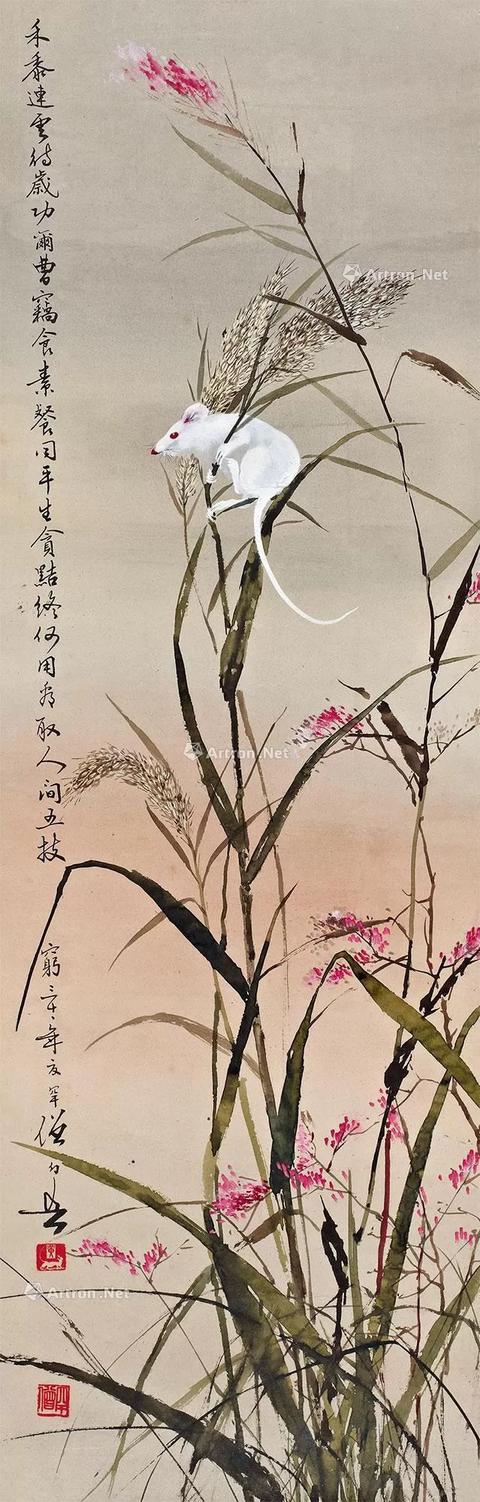 禾黍連雲待歲功爾曹竊食素餐同平生貪黠終何用看取人間五技
窮三十年
Artron.Net
Artron.Net
Artron.Net